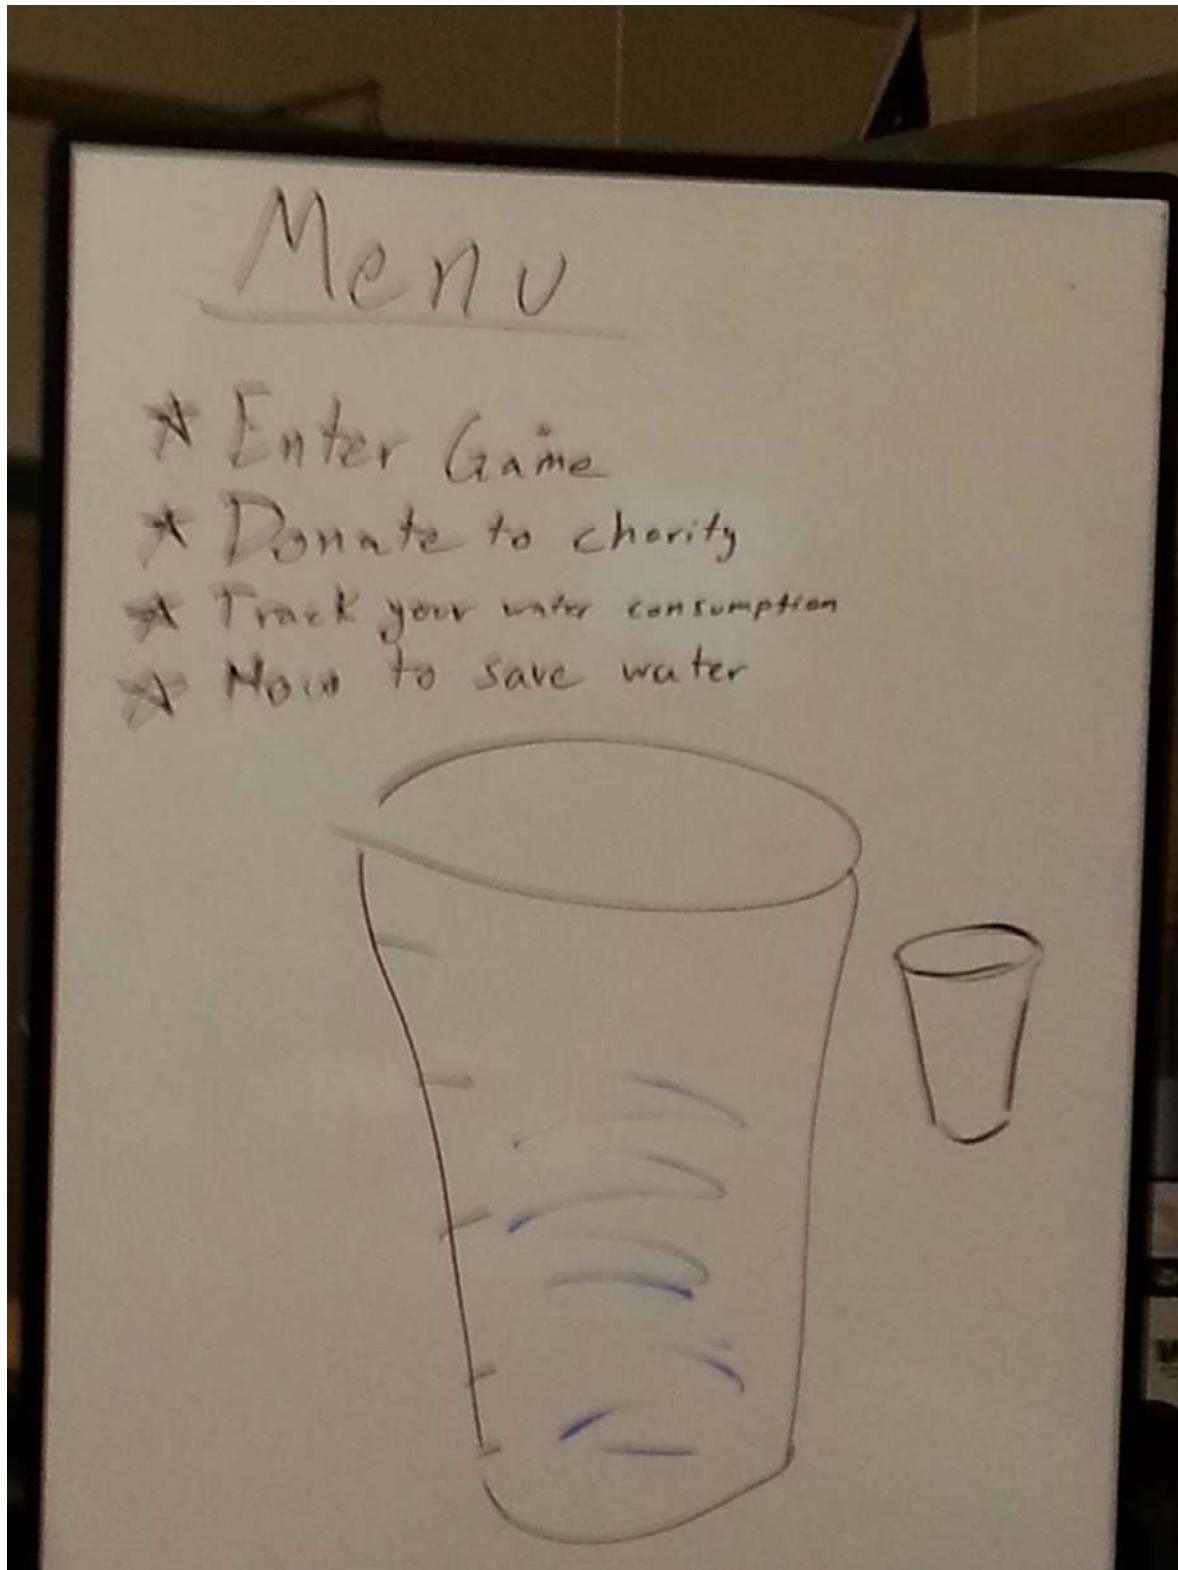 Menu
* Enter Game
* Donate to chority
* Track your water consumption
* How to save water